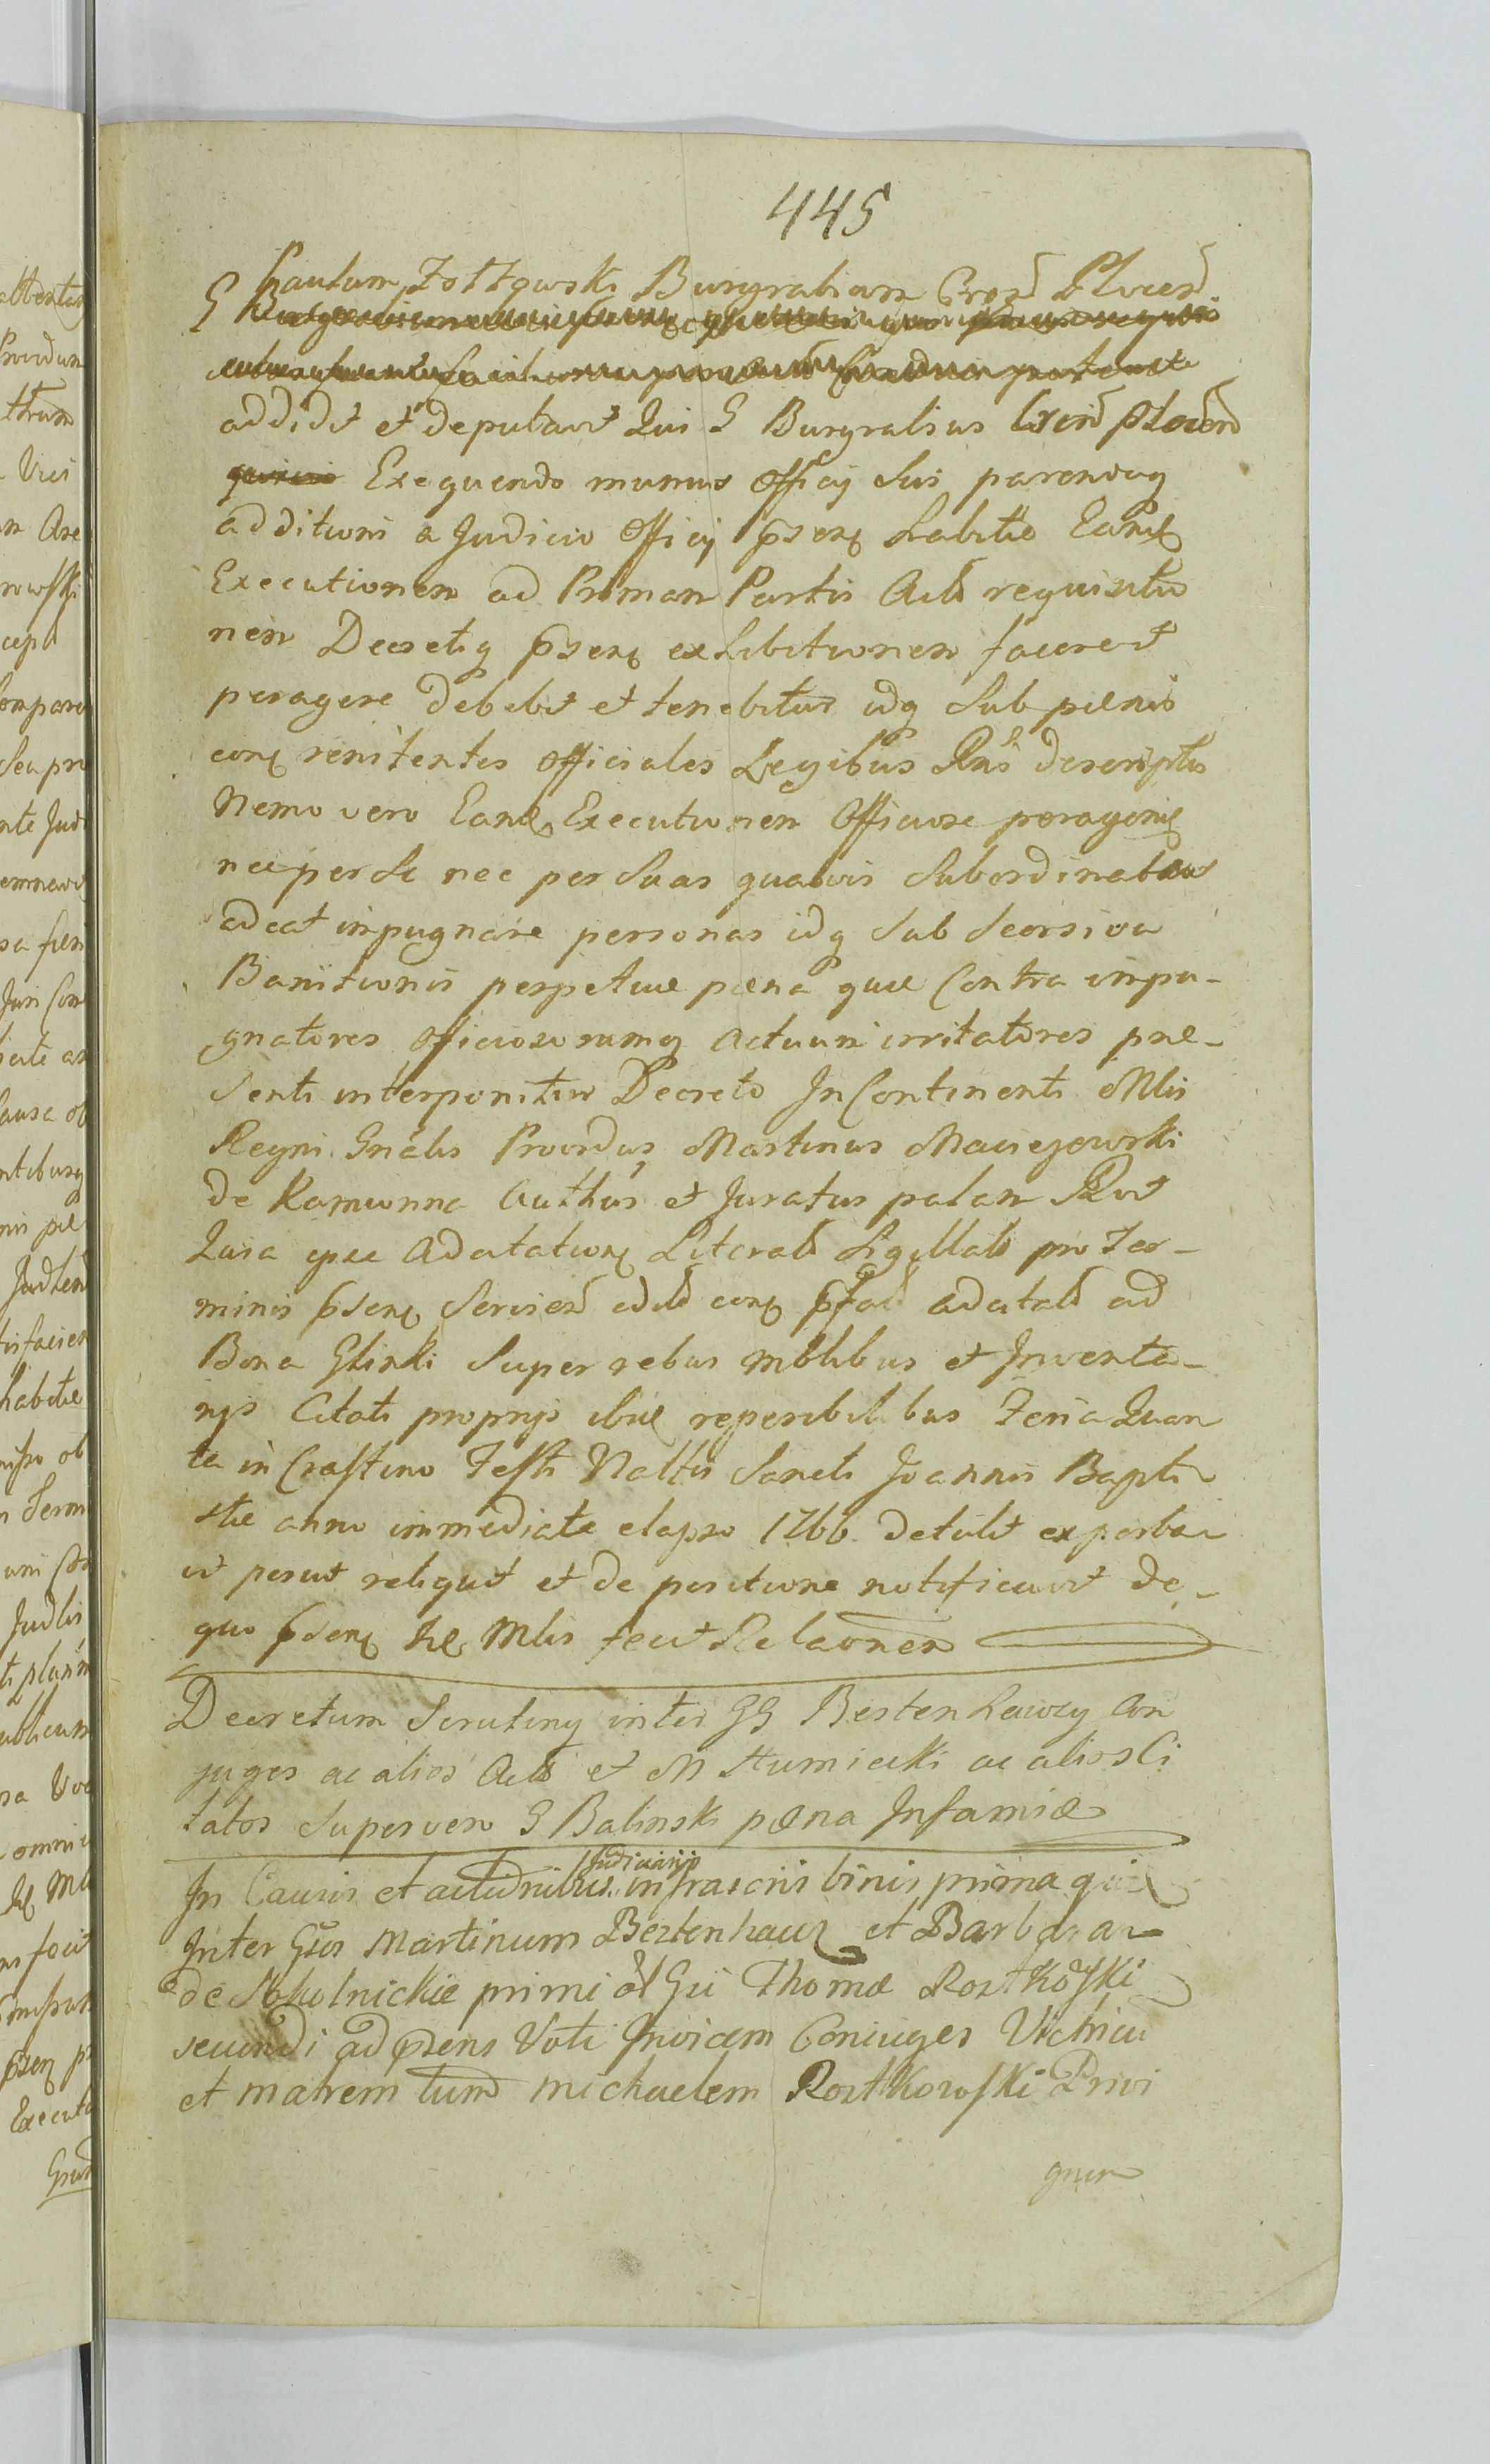 445
G Paulum Zołtowski Burgrabium Cren Plocen
addidit et deputavit Qui G Burgrabius Cren Plocen
Exequendo munus Officij Sui parendoq
additioni a Judicio Officij psenq habitæ Eanq
Executionem ad Primam Partis Actt requisitio
nem Decretiq psenq exhibitionem
peragere debebit et tenebitur idq Sub pænis
conq renitentes Officiales Legibus Rni descriptis
Nemo vero Eanq Executionem Officiose peragenq
nec per Se nec per Suas quasvis Subordinatas
adeat inpugnare personas idq Sub Seorsiva
Banitionis perpetuæ pæna quæ Contra inpu-
gnatores Officiosorumq actuum irritatores præ-
senti interponitur Decreto In Continenti Mlis
Regni Gnalis Providus Martinus Maciejowski
de Kamionna Authus et Juratus palam Rvit
Quia ipse Adcitationq Literalt Sigillatt pro Ter-
minis psenq Servien edilt conq pfatt adcitatt ad
Bona Glinki Super rebus mblibus et Inventa-
rijs Citati proprijs ibiq reperibilibus Feria Quar
ta in Crastino Festi Naltis Sancti Joannis Bapti
stæ anno immediate elapso 1766 detulit exporta
vit posuit reliquit et de positione notificavit de
quo psenq Hq Mlis fecit Relaonem
Decretum Scrutiny inter GG Bestenhawzy Con
juges ac alios Actt et M Humiecki ac alios Ci
tatos Super vero G Balinski pæna Infamiæ
In Causis et actionibus Judiciarijs infrascris binis prima qui
Inter Gsos Martinum Beztenhauz et Barbaram
de Sokolnickie primi ol Gii Thomæ Rostkoski
secundi ad psens Voti Invicem Coniuges Victricu
et matrem tum Michaelem Rostkowski Privi
gnum